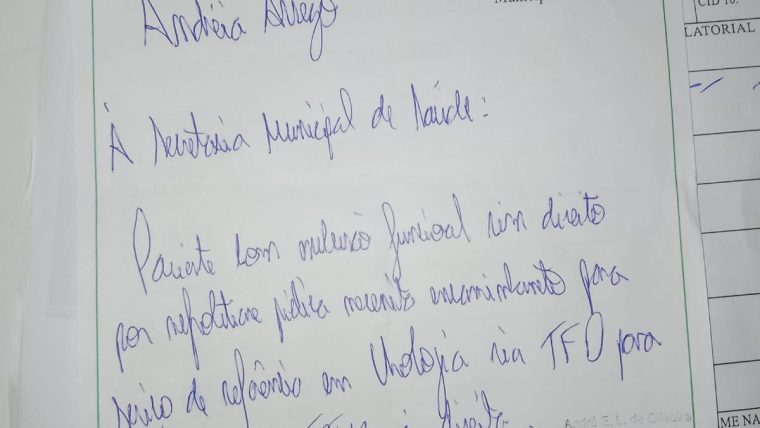 Municip
CID 10:
LATORIAL
Andréia
À Secretaria Municipal de Saúde:
Paciente com exclusão funcional rim direito
por nefrolitíase necessita encaminhamento para
serviço de referência em Urologia via TFD para
direita
André E. L. de Oliveira
ME NA